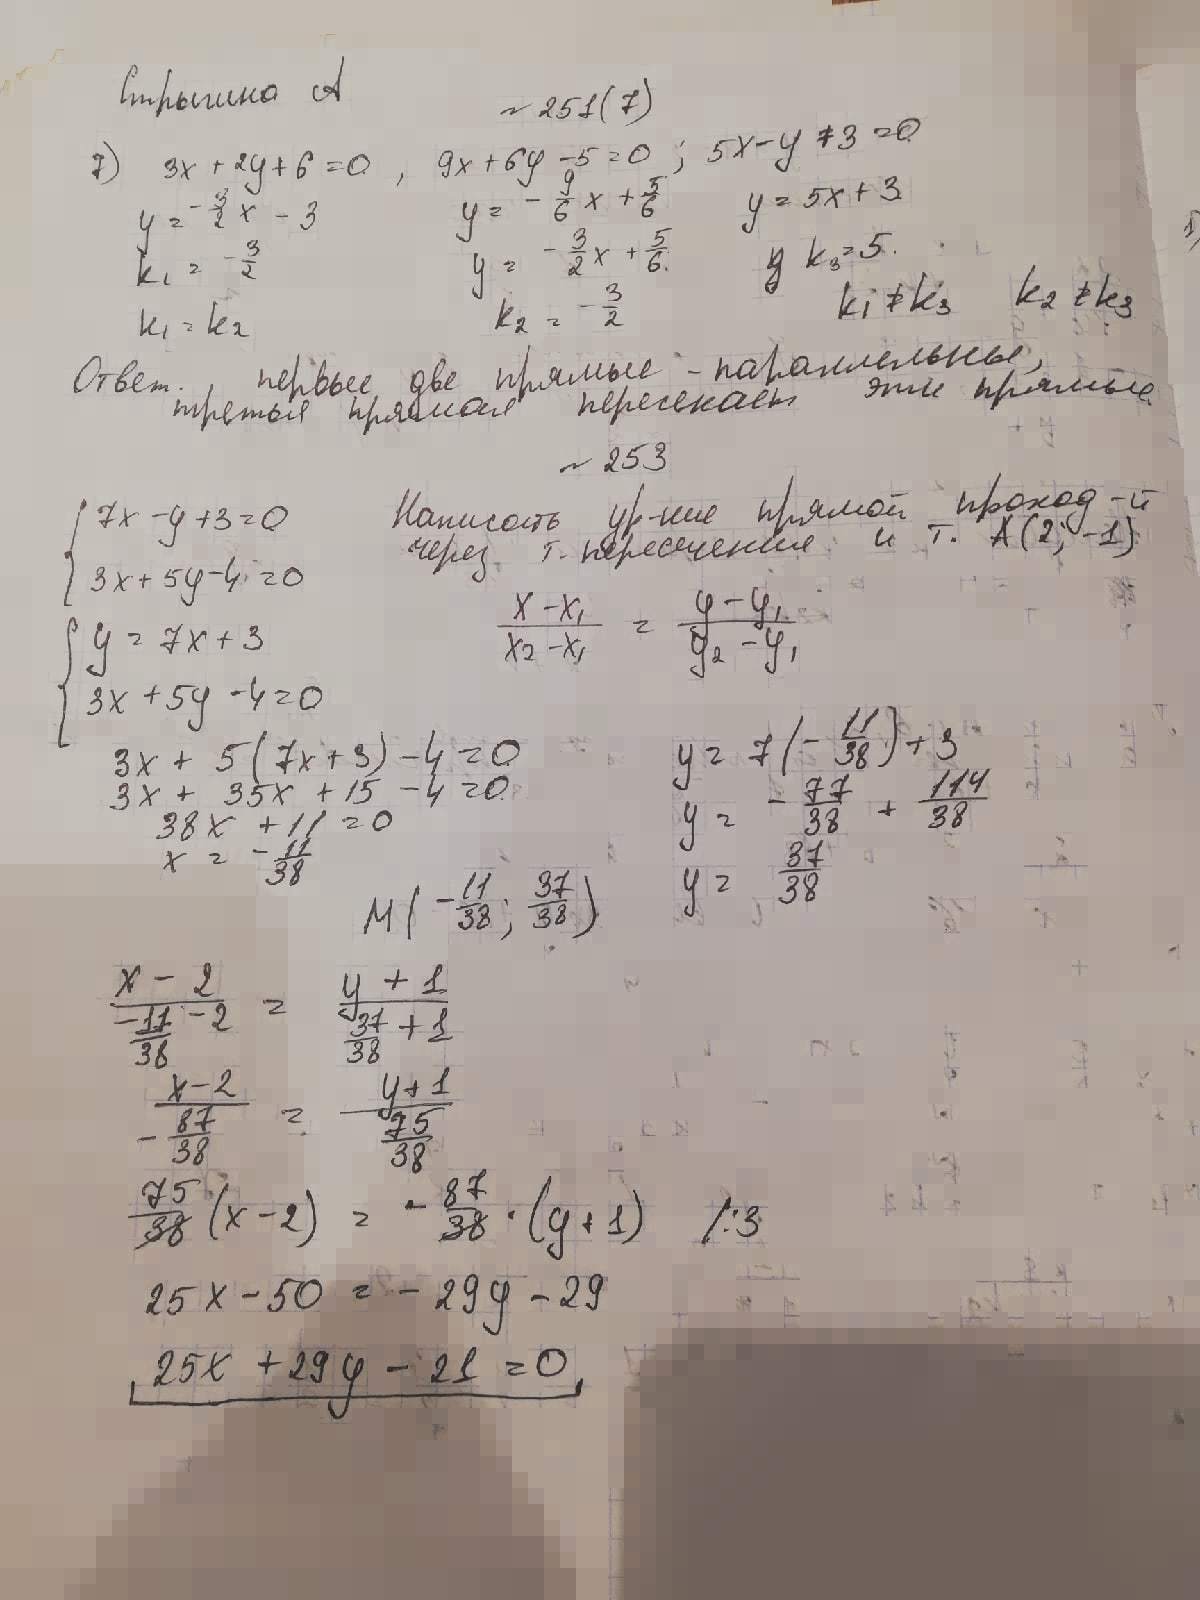 Стрыгина А
~ 251(7)
7) 3x + 2y + 6 = 0 , 9x + 6y - 5 = 0 ; 5x - y + 3 = 0
y = -3/2 x - 3 y = -9/6 x + 5/6 y = 5x + 3
k₁ = -3/2 y = -3/2 x + 5/6 k₃ = 5.
k₁ = k₂ k₂ = -3/2 k₁ ≠ k₃ k₂ ≠ k₃
Ответ. первые две прямые - параллельны,
третья прямая пересекает эти прямые.
~ 253
7x - y + 3 = 0 Написать ур-ние прямой проход-й
3x + 5y - 4 = 0 через т. пересечения и т. A(2; -1)
y = 7x + 3 (x - x₁)/(x₂ - x₁) = (y - y₁)/(y₂ - y₁)
3x + 5y - 4 = 0
3x + 5(7x + 3) - 4 = 0 y = 7(-11/38) + 3
3x + 35x + 15 - 4 = 0 y = -77/38 + 114/38
38x + 11 = 0
x = -11/38 y = 37/38
M(-11/38; 37/38)
(x - 2)/(-11/38 - 2) = (y + 1)/(37/38 + 1)
(x - 2)/(-87/38) = (y + 1)/(75/38)
75/38 (x - 2) = -87/38 · (y + 1) /:3
25x - 50 = -29y - 29
25x + 29y - 21 = 0